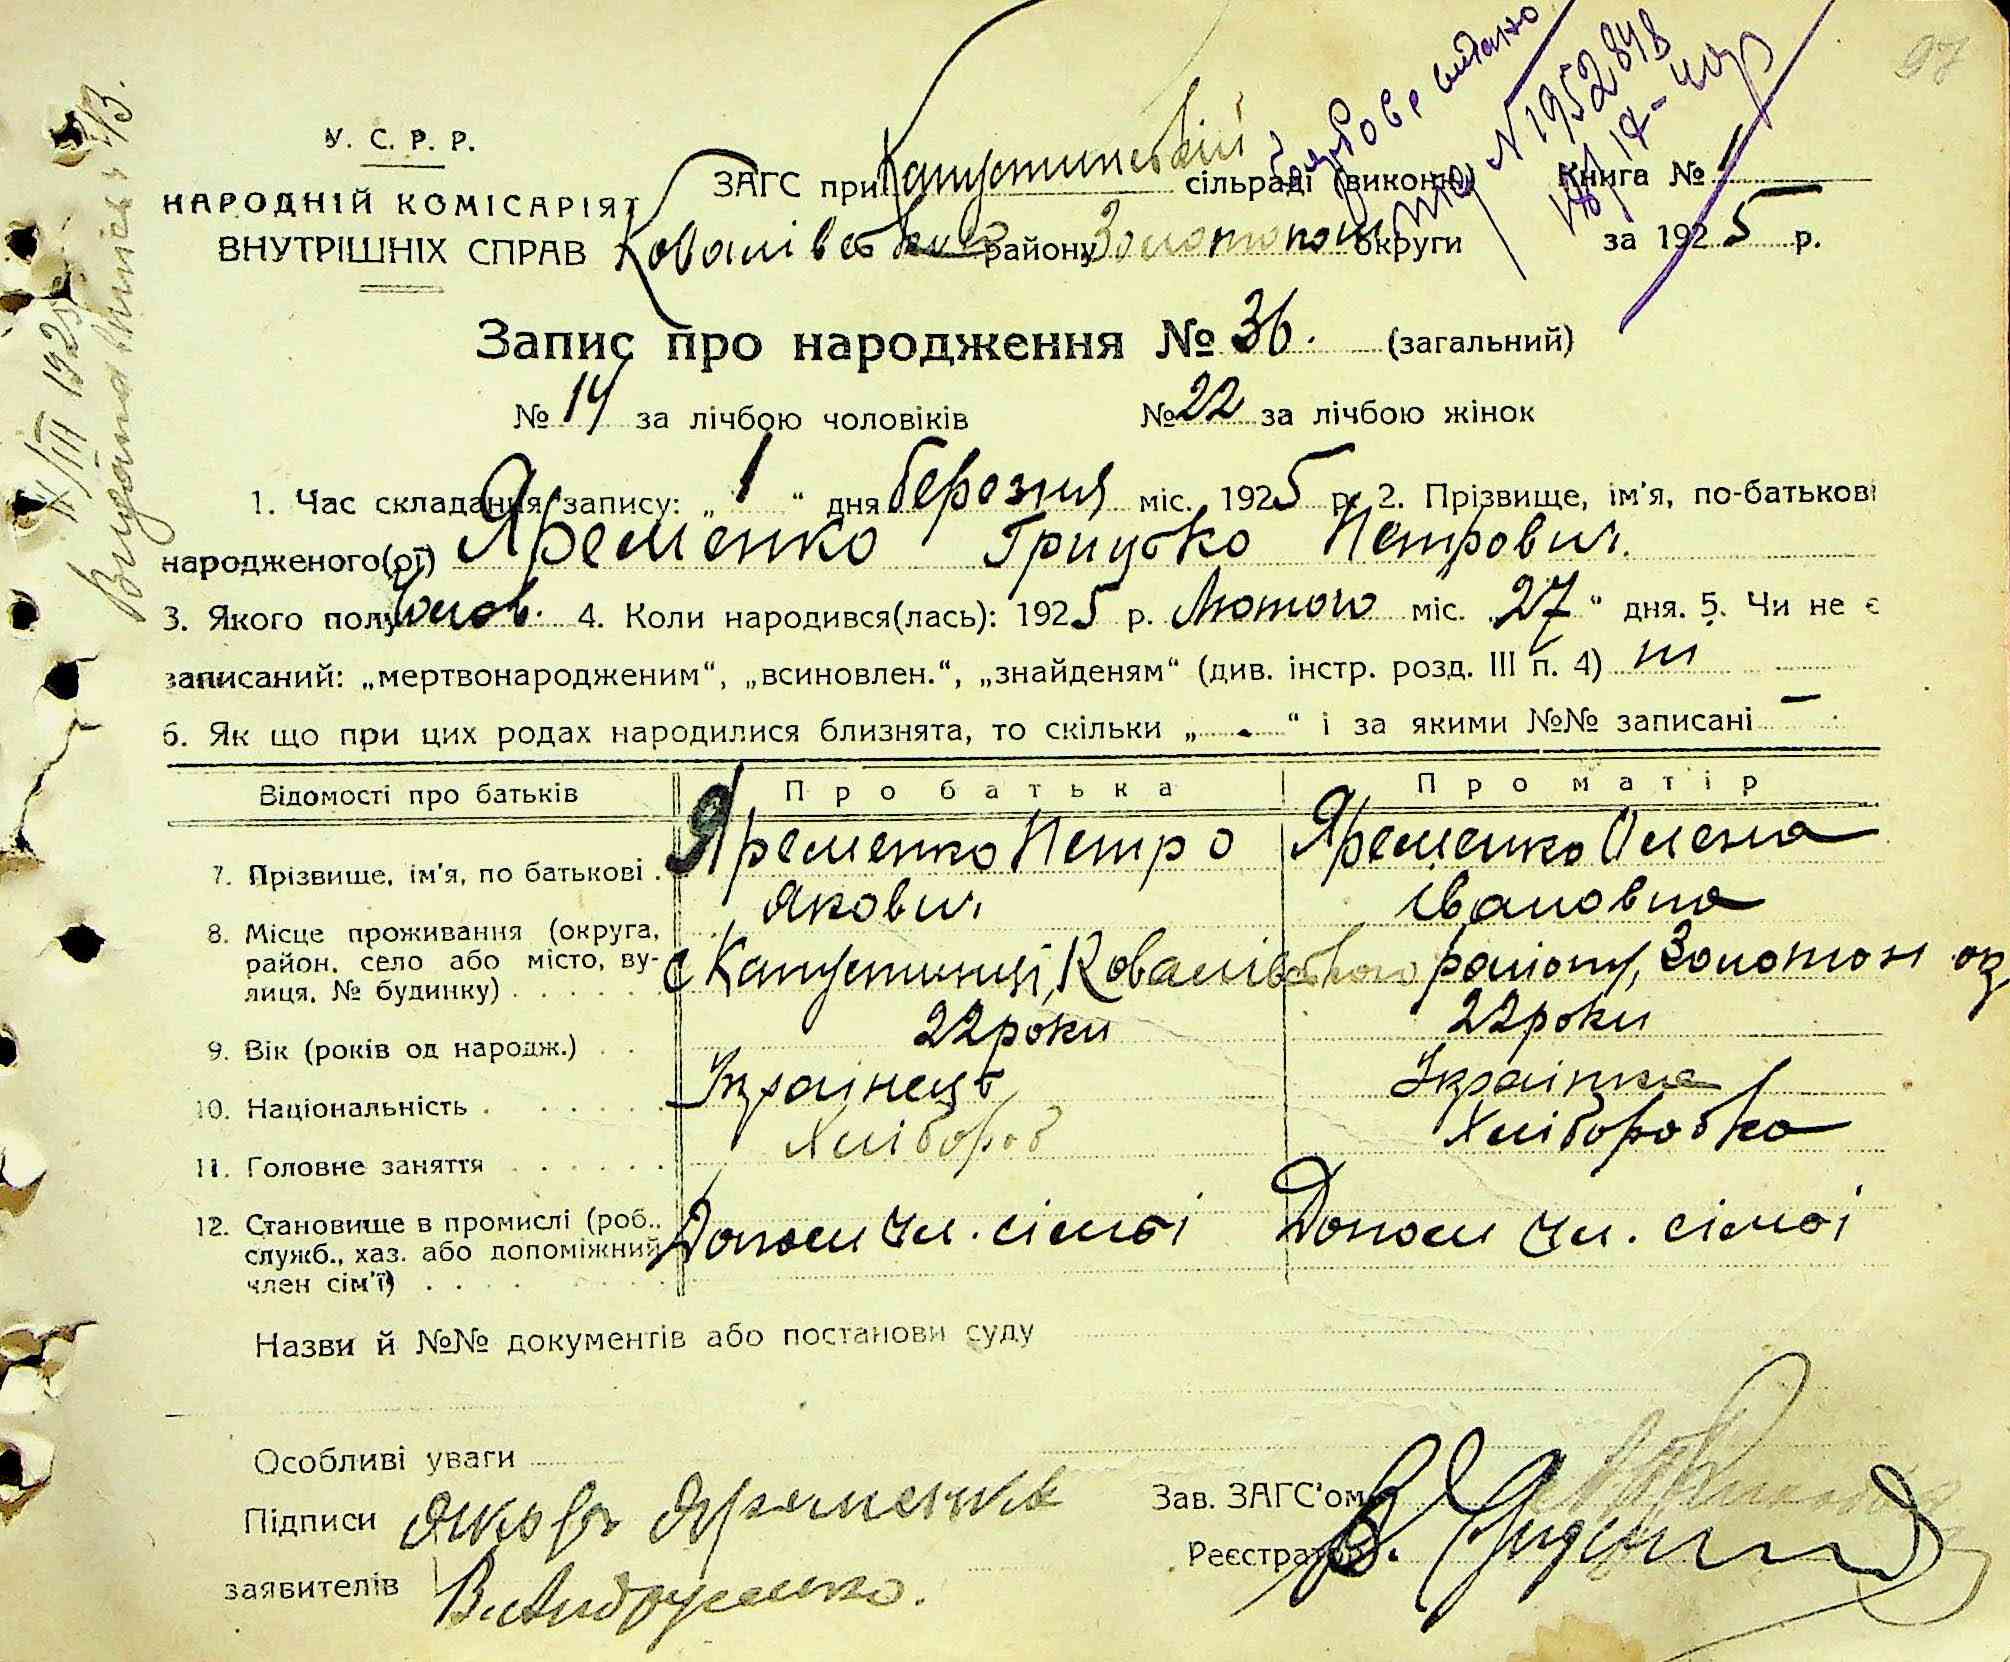 97
У. С. Р. Р.
НАРОДНІЙ КОМІСАРІЯТ
ВНУТРІШНІХ СПРАВ
ЗАГС при Капустинській сільраді (виконк.) Книга № 1
Ковалівського району Золотонош округи за 1925 р.
видано
N 1952848
Запис про народження № 36. (загальний)
№ 14 за лічбою чоловіків № 22 за лічбою жінок
1. Час складання запису: „ 1 “ дня березня міс. 1925 р. 2. Прізвище, ім'я, по-батькові
народженого(ої) Яременко Грицько Петрович.
3. Якого полу чолов. 4. Коли народився(лась): 1925 р. Лютого міс. „27“ дня. 5. Чи не є
записаний: „мертвонародженим“, „всиновлен.“, „знайденям“ (див. інстр. розд. III п. 4) ні
6. Як що при цих родах народилися близнята, то скільки „ - “ і за якими №№ записані —
Відомості про батьків Про батька Про матір
7. Прізвище, ім'я, по батькові . Яременко Петро Якович Яременко Олена Івановна
8. Місце проживання (округа,
район, село або місто, ву-
лиця, № будинку) . . . . . . с Капустинці, Ковалівського району, Золотон ок
9. Вік (років од народж.) . . 22 роки 22 роки
10. Національність . . . . . . Українець Українка
11. Головне заняття . . . . . . Хлібороб Хліборобка
12. Становище в промислі (роб.,
служб., хаз. або допоміжний
член сім'ї) . . . . Допом чл. сімьі Допом чл. сімьі
Назви й №№ документів або постанови суду
Особливі уваги
Підписи Яков Яременко
заявителів В. Андрущенко.
Зав. ЗАГС'ом
Реєстратор
Видана випись